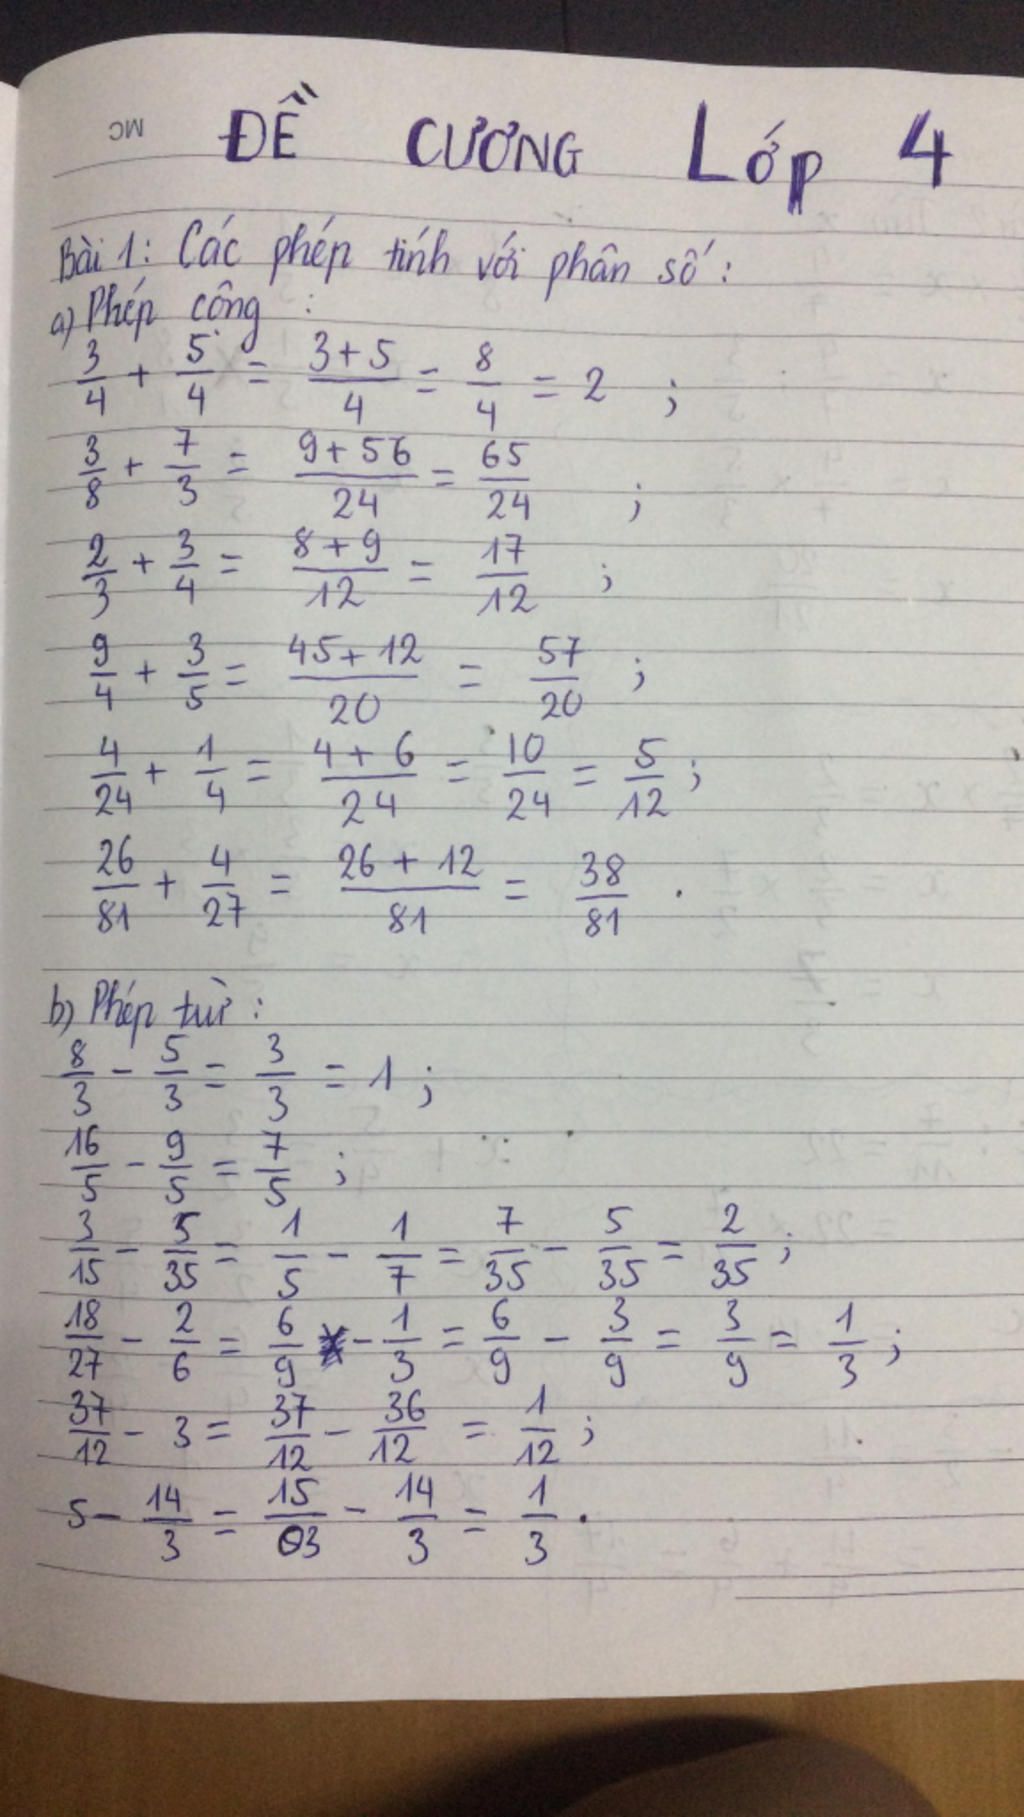 MC
ĐỀ CƯƠNG Lớp 4
Bài 1: Các phép tính với phân số:
a) Phép công:
3/4 + 5/4 = (3+5)/4 = 8/4 = 2 ;
3/8 + 7/3 = (9+56)/24 = 65/24 ;
2/3 + 3/4 = (8+9)/12 = 17/12 ;
9/4 + 3/5 = (45+12)/20 = 57/20 ;
4/24 + 1/4 = (4+6)/24 = 10/24 = 5/12 ;
26/81 + 4/27 = (26+12)/81 = 38/81 .
b) Phép từ:
8/3 - 5/3 = 3/3 = 1 ;
16/5 - 9/5 = 7/5 ;
3/15 - 5/35 = 1/5 - 1/7 = 7/35 - 5/35 = 2/35 ;
18/27 - 2/6 = 6/9 - 1/3 = 6/9 - 3/9 = 3/9 = 1/3 ;
37/12 - 3 = 37/12 - 36/12 = 1/12 ;
5 - 14/3 = 15/03 - 14/3 = 1/3 .